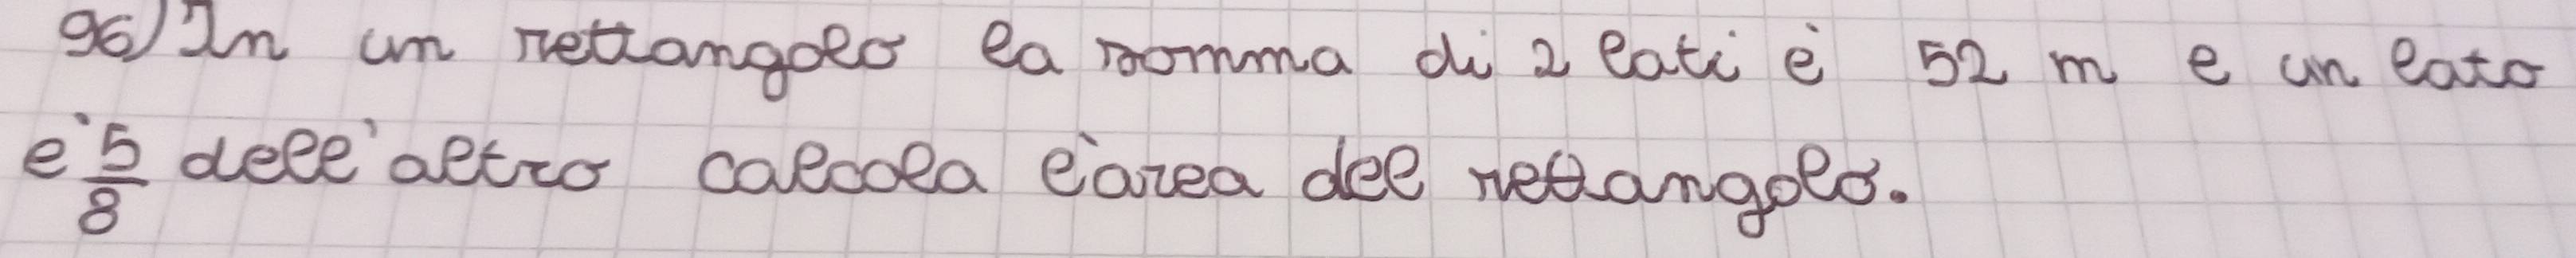 96) In un rettangolo la somma di 2 lati è 52 m e un lato
è 5/8 dell'altro calcola l'area del rettangolo.